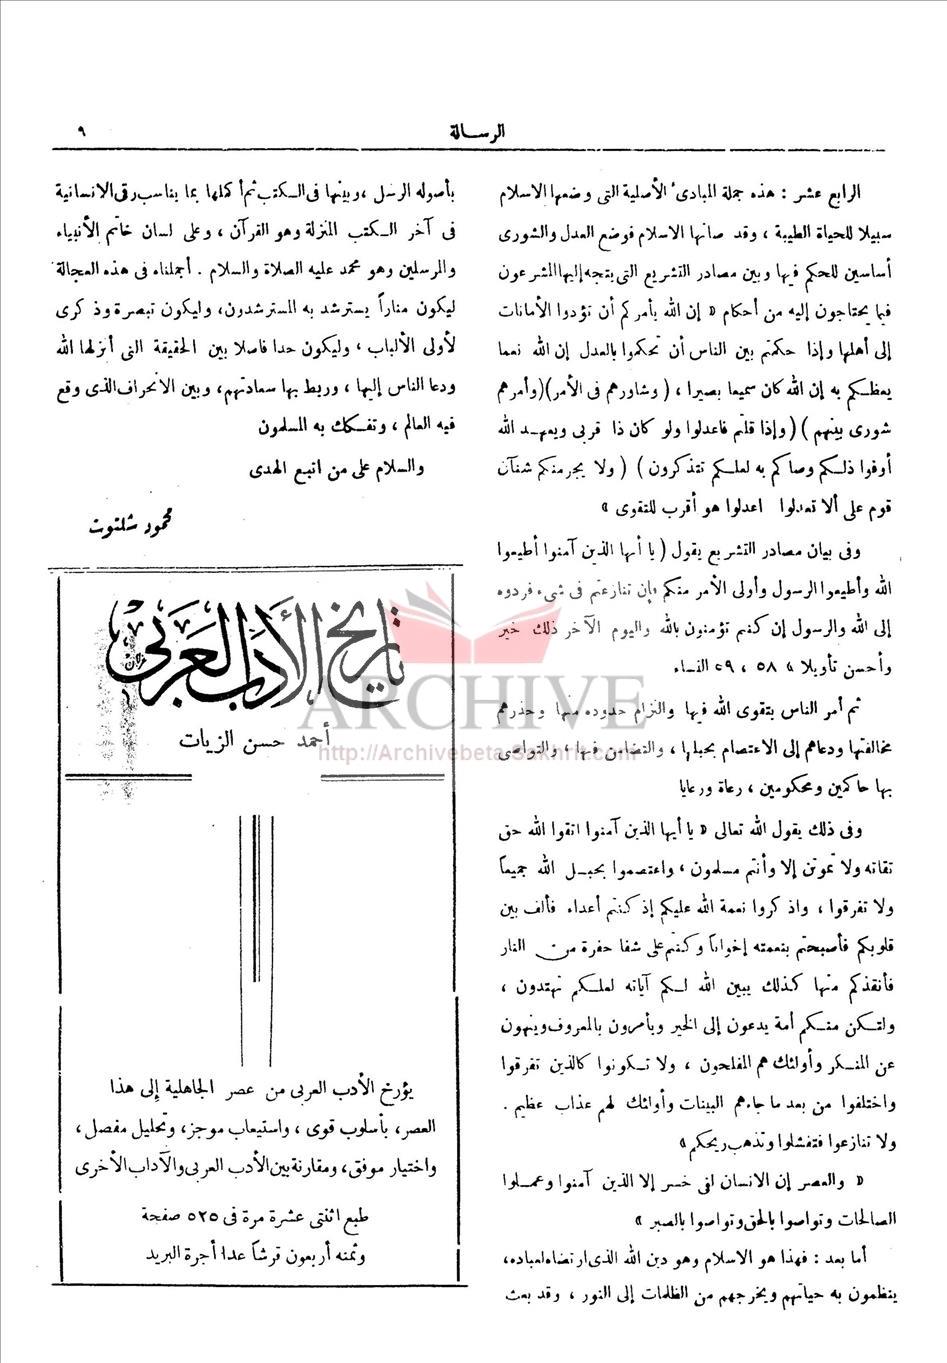 الرسالة
٩
الرابع عشر : هذه جملة المبادئ الأصلية التى وضعها الاسلام
سبيلا للحياة الطيبة ، وقد صانها الاسلام فوضع العدل والشورى
أساسين للحكم فيها وبين مصادر التشريع التى يتجه إليها المشرعون
فيما يحتاجون إليه من أحكام « إن الله يأمركم أن تؤدوا الأمانات
إلى أهلها وإذا حكمتم بين الناس أن تحكموا بالعدل إن الله نعما
يعظكم به إن الله كان سميعا بصيرا ، ( وشاورهم فى الأمر)(وأمرهم
شورى بينهم ) (وإذا قلتم فاعدلوا ولو كان ذا قربى وبعهد الله
أوفوا ذلكم وصاكم به لعلكم تتذكرون ) ( ولا يجرمنكم شنآن
قوم على ألا تعدلوا اعدلوا هو أقرب للتقوى »
وفى بيان مصادر التشريع يقول ( يا أيها الذين آمنوا أطيعوا
الله وأطيعوا الرسول وأولى الأمر منكم فإن تنازعتم فى شىء فردوه
إلى الله والرسول إن كنتم تؤمنون بالله واليوم الآخر ذلك خير
وأحسن تأويلا » ٥٨ ، ٥٩ النساء
ثم أمر الناس بتقوى الله فيها والتزام حدوده منها وحذرهم
مخالفتها ودعاهم إلى الاعتصام بحبلها ، والتضامن فيها ، والتواصى
بها حاكمين ومحكومين ، رعاة ورعايا
وفى ذلك يقول الله تعالى « يا أيها الذين آمنوا اتقوا الله حق
تقاته ولا تموتن إلا وأنتم مسلمون ، واعتصموا بحبل الله جميعاً
ولا تفرقوا ، واذكروا نعمة الله عليكم إذ كنتم أعداء فألف بين
قلوبكم فأصبحتم بنعمته إخواناً وكنتم على شفا حفرة من النار
فأنقذكم منها كذلك يبين الله لكم آياته لعلكم تهتدون ،
ولتكن منكم أمة يدعون إلى الخير ويأمرون بالمعروف وينهون
عن المنكر وأولئك هم المفلحون ، ولا تكونوا كالذين تفرقوا
واختلفوا من بعد ما جاءهم البينات وأولئك لهم عذاب عظيم .
ولا تنازعوا فتفشلوا وتذهب ريحكم »
« والعصر إن الانسان لفى خسر إلا الذين آمنوا وعملوا
الصالحات وتواصوا بالحق وتواصوا بالصبر »
أما بعد : فهذا هو الاسلام وهو دين الله الذى ارتضاه لعباده،
ينظمون به حياتهم ويخرجهم من الظلمات إلى النور ، وقد بعث
بأصوله الرسل ، وبينها فى الكتب ثم أكملها بما يناسب رقى الانسانية
فى آخر الكتب المنزلة وهو القرآن ، وعلى لسان خاتم الأنبياء
والمرسلين وهو محمد عليه الصلاة والسلام . أجملناه فى هذه العجالة
ليكون مناراً يسترشد به المسترشدون، وليكون تبصرة وذكرى
لأولى الألباب ، وليكون حدا فاصلا بين الحقيقة التى أنزلها الله
ودعا الناس إليها ، وربط بها سعادتهم، وبين الانحراف الذى وقع
فيه العالم ، وتفكك به المسلمون
والسلام على من اتبع الهدى
محمود شلتوت
تاريخ الأدب العربى
أحمد حسن الزيات
يؤرخ الأدب العربى من عصر الجاهلية إلى هذا
العصر، بأسلوب قوى ، واستيعاب موجز، وتحليل مفصل ،
واختيار موفق، ومقارنة بين الأدب العربى والآداب الأخرى
طبع اثنتى عشرة مرة فى ٥٢٥ صفحة
وثمنه أربعون قرشاً عدا أجرة البريد
ARCHIVE
http://Archivebeta.Sakhrit.com